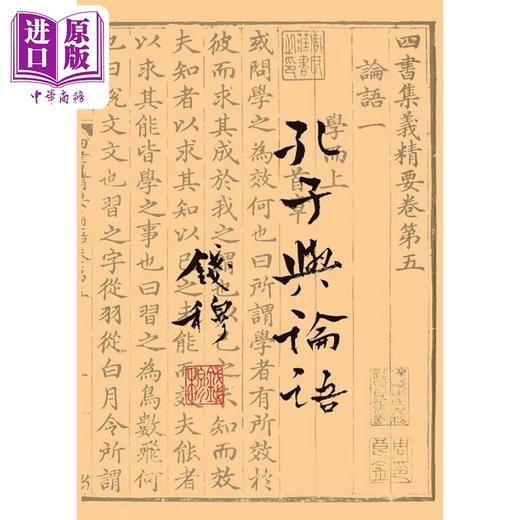 进口
原版
中華商務
孔子與論語
錢穆
四書集義精要卷第五
論語一
學而上
首章
或問學之為效何也曰所謂學者有所效於
彼而求其成於我之謂也以己之未知而效
夫知者以求其知以己之未能而效夫能者
以求其能皆學之事也曰習之為鳥數飛何
也曰說文文也習之字從羽從白月令所謂